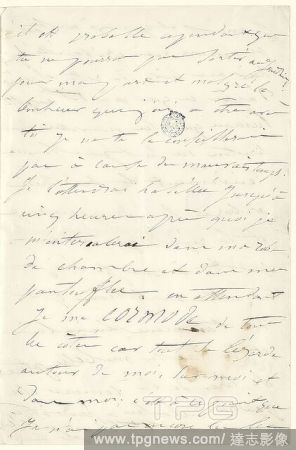 il est probable cependant que
tu ne pourras pas sortir aujourd'hui
pour ma part et malgré le
bonheur que j'ai à être avec
toi je ne te le conseillerai
pas à cause du mauvais temps.
Je t'attendrai habillée jusqu'à
cinq heures après quoi je
m'intercalerai dans ma robe
de chambre et dans mes
pantoufles. en attendant
je me CORMODE de tous
les côtés car tout se lézarde
autour de moi,
dans moi, c'est
Je n'ai pas encore
TPG
www.tpgnews.com / 達志影像